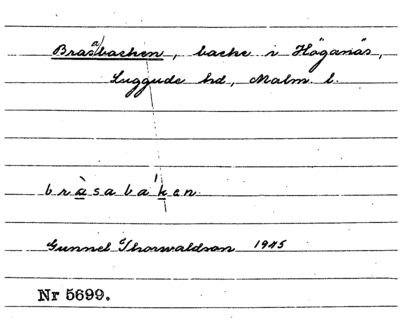 Brasabacken, backe i Höganäs,
Luggude hd, Malm. l.
bràsaba'ken
Gunnel Thorwaldson 1945
Nr 5699.